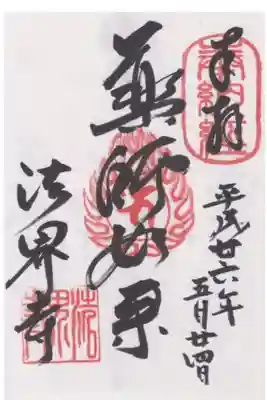 奉拝
平成廿六年
五月廿四日
薬師如来
法界寺